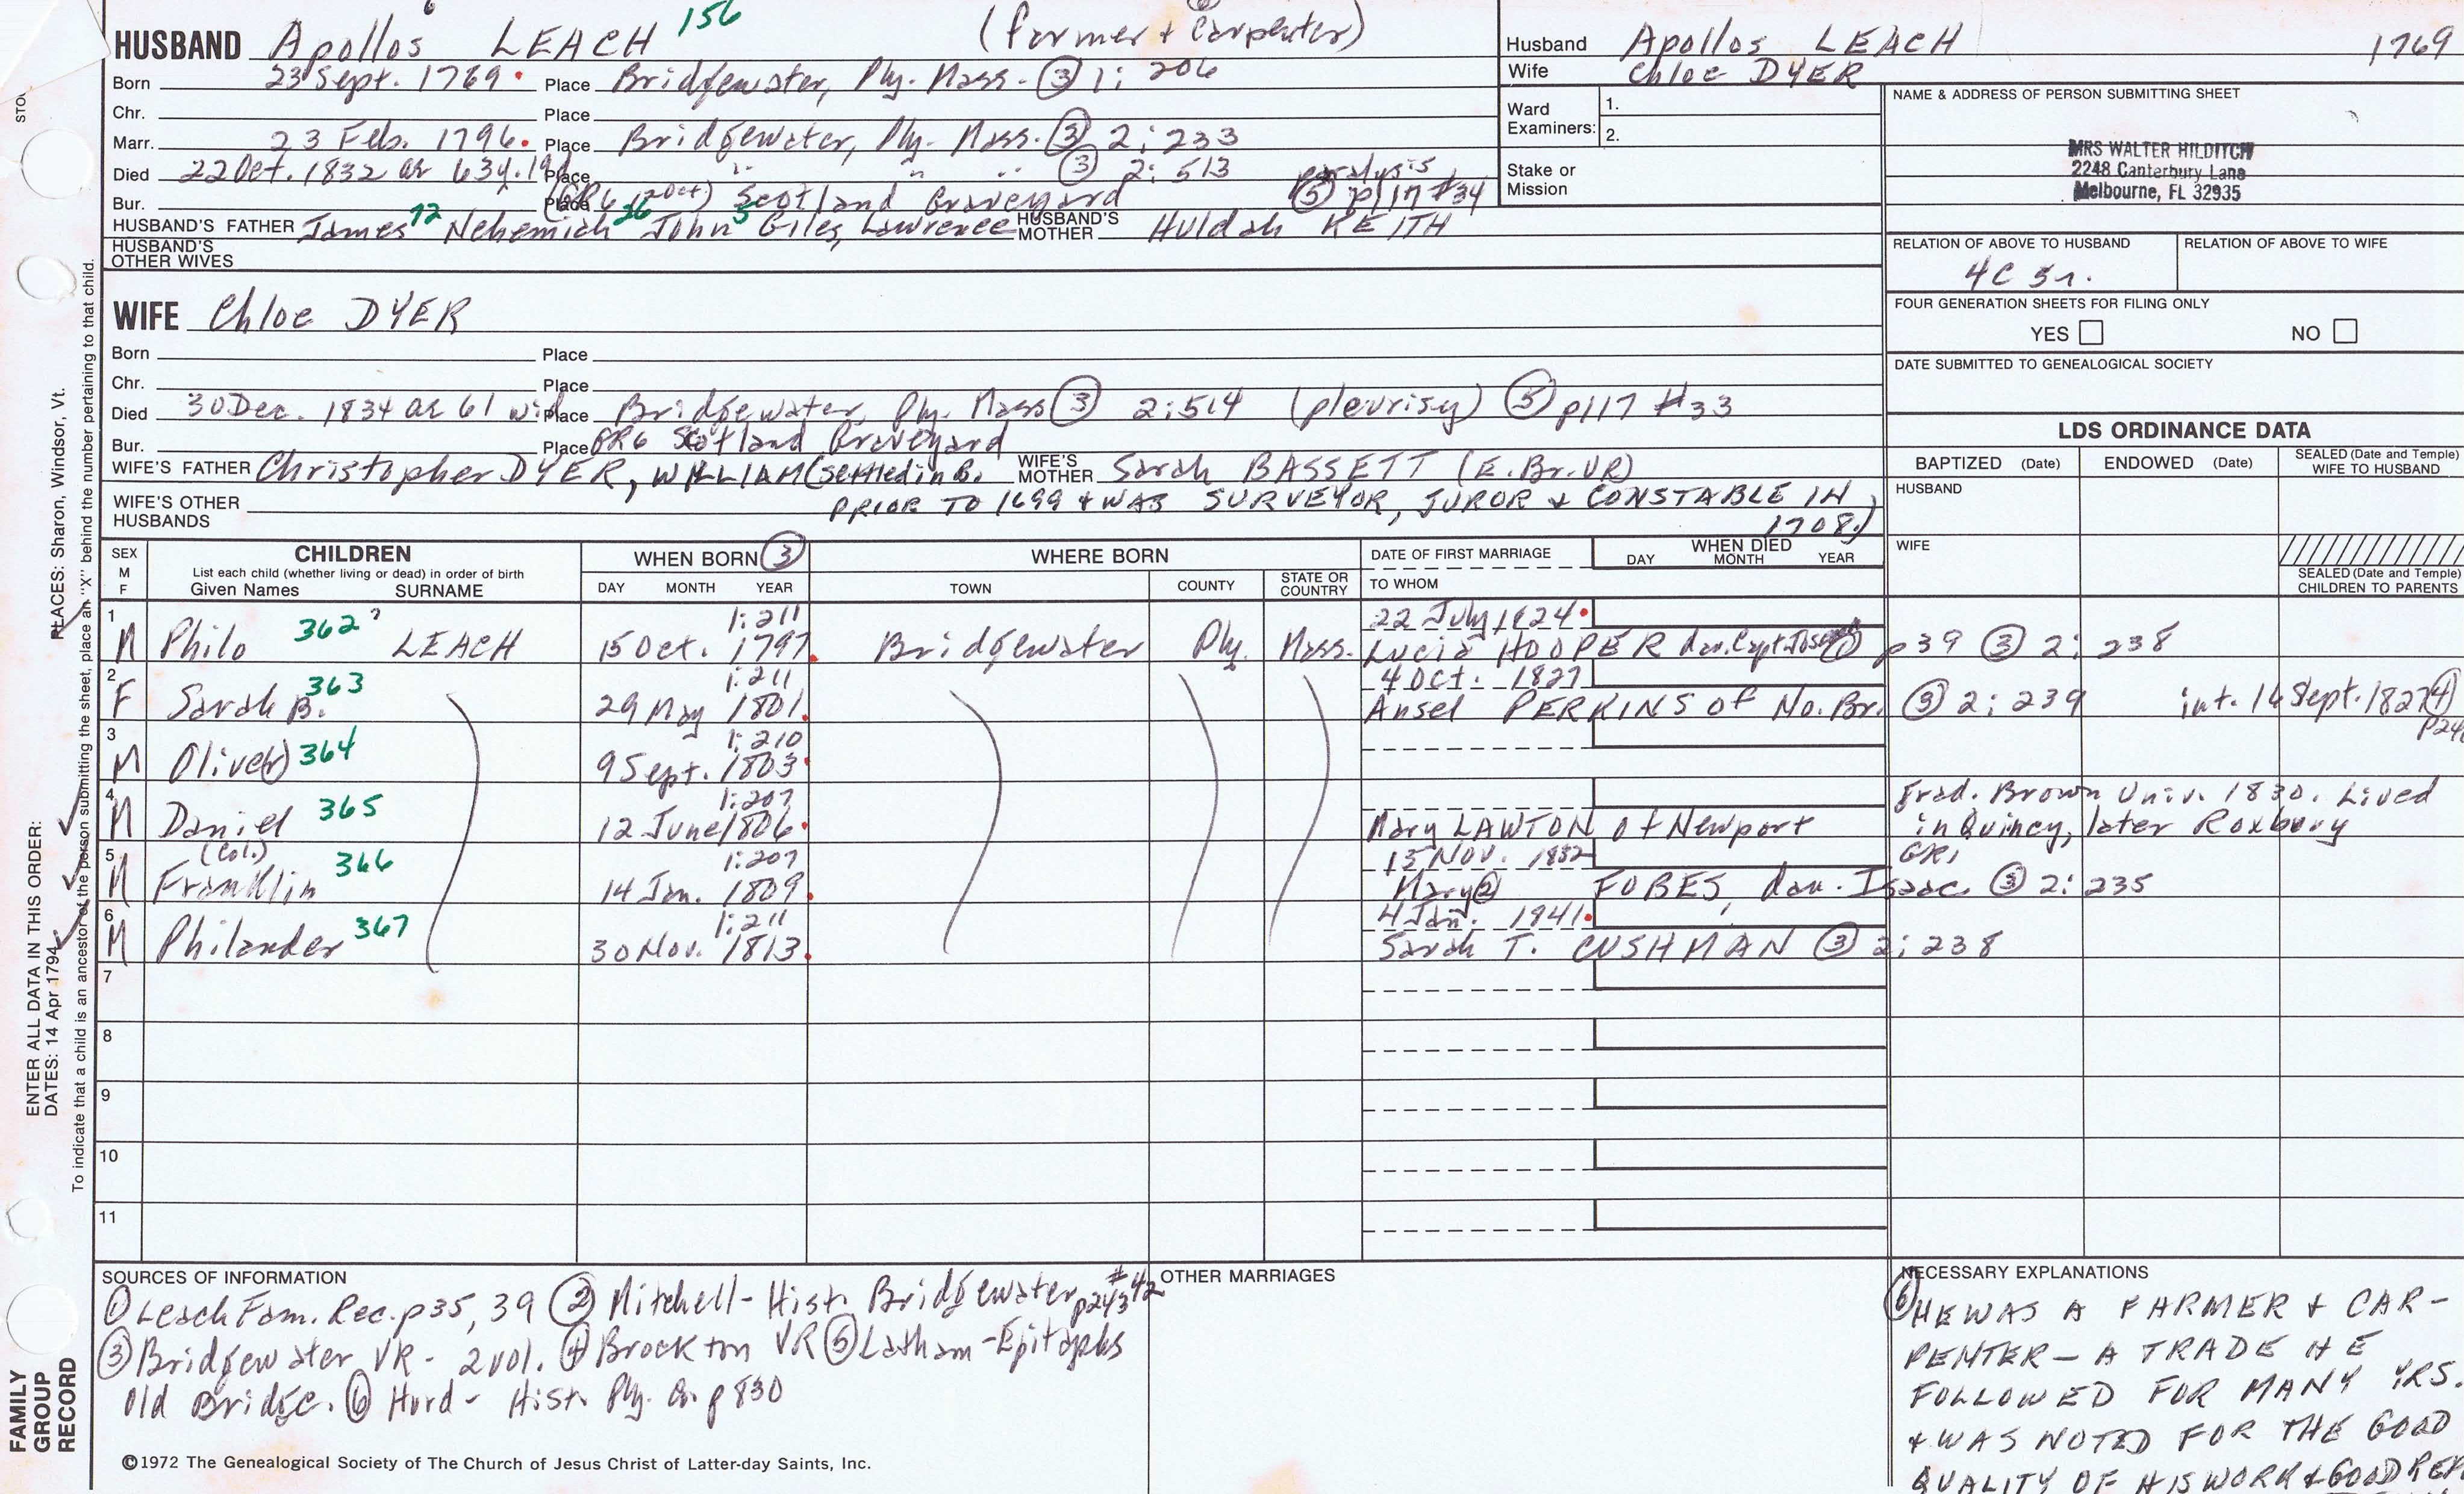 156 (Farmer + Carpenter)
HUSBAND Apollos LEACH
Born 23 Sept. 1769 Place Bridgewater, Ply. Mass. ③ 1: 206
Chr. Place
Marr. 23 Feb. 1796 Place Bridgewater, Ply. Mass. ③ 2: 233
Died 22 Oct. 1832 ae 63y. Place " " " ③ 2: 513 paralysis
Bur. Place (GR6 Oct) Scotland Graveyard ⑤ p117 #34
HUSBAND'S FATHER James 72 Nehemiah 26 John 5 Giles, Lawrence HUSBAND'S MOTHER Huldah KEITH
HUSBAND'S OTHER WIVES
Husband Apollos LEACH 1769
Wife Chloe DYER
Ward Examiners: 1.
2.
Stake or Mission
NAME & ADDRESS OF PERSON SUBMITTING SHEET
MRS WALTER HILDITCH
2248 Canterbury Lane
Melbourne, FL 32935
RELATION OF ABOVE TO HUSBAND RELATION OF ABOVE TO WIFE
4C 5r.
FOUR GENERATION SHEETS FOR FILING ONLY
YES NO
DATE SUBMITTED TO GENEALOGICAL SOCIETY
WIFE Chloe DYER
Born Place
Chr. Place
Died 30 Dec. 1834 ae 61 wid Place Bridgewater, Ply. Mass ③ 2:514 (pleurisy) ⑤ p117 #33
Bur. Place GR6 Scotland Graveyard
WIFE'S FATHER Christopher DYER, WILLIAM (settled in B. WIFE'S MOTHER Sarah BASSETT (E. Br. VR)
WIFE'S OTHER HUSBANDS PRIOR TO 1699 + WAS SURVEYOR, JUROR & CONSTABLE IN
1708.)
LDS ORDINANCE DATA
BAPTIZED (Date) ENDOWED (Date) SEALED (Date and Temple) WIFE TO HUSBAND
HUSBAND
WIFE
SEALED (Date and Temple) CHILDREN TO PARENTS
SEX M F CHILDREN List each child (whether living or dead) in order of birth Given Names SURNAME
WHEN BORN ③ DAY MONTH YEAR
WHERE BORN TOWN COUNTY STATE OR COUNTRY
DATE OF FIRST MARRIAGE TO WHOM
WHEN DIED DAY MONTH YEAR
1 1:211 22 July 1824
M Philo 362 ? LEACH 15 Oct. 1797 Bridgewater Ply. Mass. Lucia HOOPER dau. Capt. p39 ③ 2: 238
2 363 1:211 4 Oct. 1827
F Sarah B. 29 May 1801 Ansel PERKINS of No. Br. ③ 2: 239 int. 16 Sept. 1827 ④
3 1:210
M Olive(r) 364 9 Sept. 1803
4 1:207 Grad. Brown Univ. 1830. Lived
M Daniel 365 12 June 1806 Mary LAWTON of Newport in Quincy, later Roxbury
5 (Col.) 366 1:207 13 Nov. 1832 GR1
M Franklin 14 Jan. 1809 Mary ② FOBES, dau. Isaac ③ 2: 235
6 367 1:211 4 Jan. 1841
M Philander 30 Nov. 1813 Sarah T. CUSHMAN ③ 2: 238
7
8
9
10
11
SOURCES OF INFORMATION
① Leach Fam. Rec. p35, 39 ② Mitchell - Hist. Bridgewater p243 #42
③ Bridgewater VR - 2 vol. ④ Brockton VR ⑤ Latham - Epitaphs
Old Bridge. ⑥ Hurd - Hist. Ply. Co. p 830
OTHER MARRIAGES
NECESSARY EXPLANATIONS
⑥ HE WAS A FARMER & CAR-
PENTER - A TRADE HE
FOLLOWED FOR MANY YRS.
+ WAS NOTED FOR THE GOOD
QUALITY OF HIS WORK & GOOD
©1972 The Genealogical Society of The Church of Jesus Christ of Latter-day Saints, Inc.
FAMILY
GROUP
RECORD
ENTER ALL DATA IN THIS ORDER:
DATES: 14 Apr 1794
PLACES: Sharon, Windsor, Vt.
To indicate that a child is an ancestor of the person submitting the sheet, place an "X" behind the number pertaining to that child.